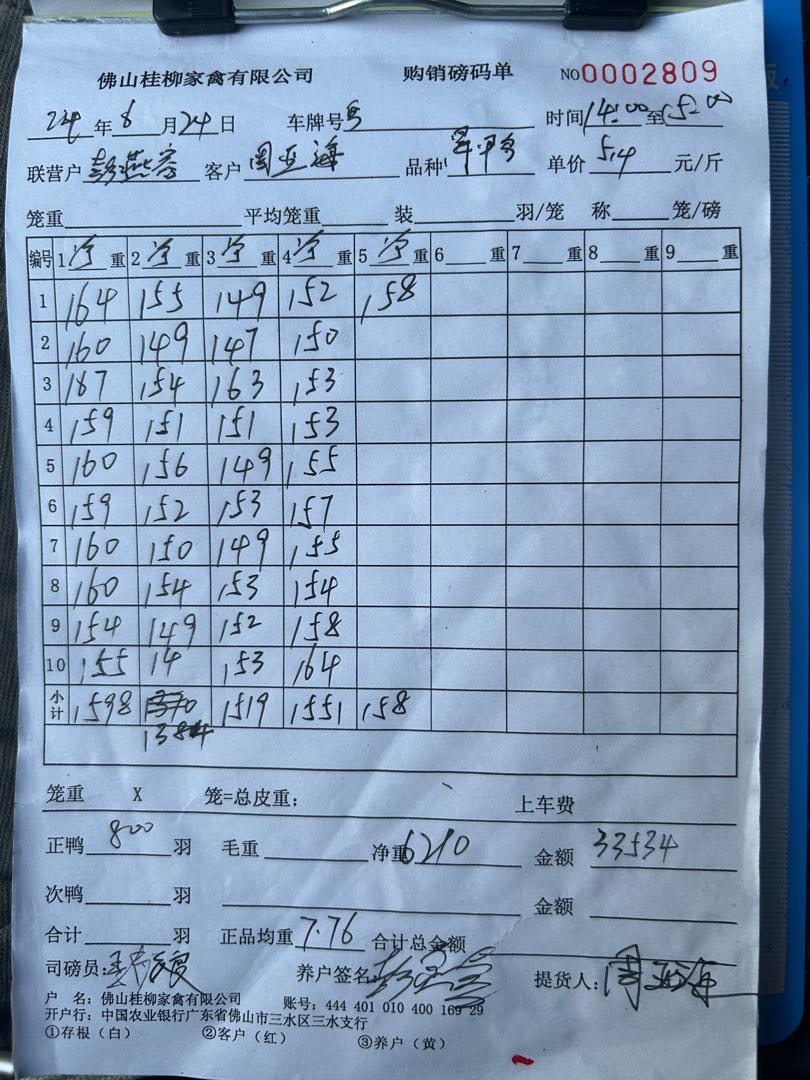 佛山桂柳家禽有限公司 购销磅码单 NO0002809
24年8月24日 车牌号 时间14:00至15:00
联营户彭燕容 客户周亚海 品种 单价5.4元/斤
笼重 平均笼重 装 羽/笼 称 笼/磅
编号 1净重 2净重 3净重 4净重 5净重 6重 7重 8重 9重
1 164 155 149 152 158
2 160 149 147 150
3 167 154 163 153
4 159 151 151 153
5 160 156 149 155
6 159 152 153 157
7 160 150 149 155
8 160 154 153 154
9 154 149 152 158
10 155 14 153 164
小计 1598 1519 1551 158
1384
笼重 X 笼=总皮重: 上车费
正鸭800羽 毛重 净重6210 金额33534
次鸭 羽 金额
合计 羽 正品均重7.76 合计总金额
司磅员: 养户签名: 提货人:周亚海
户 名: 佛山桂柳家禽有限公司 账号: 444 401 010 400 169 29
开户行: 中国农业银行广东省佛山市三水区三水支行
①存根(白) ②客户(红) ③养户(黄)